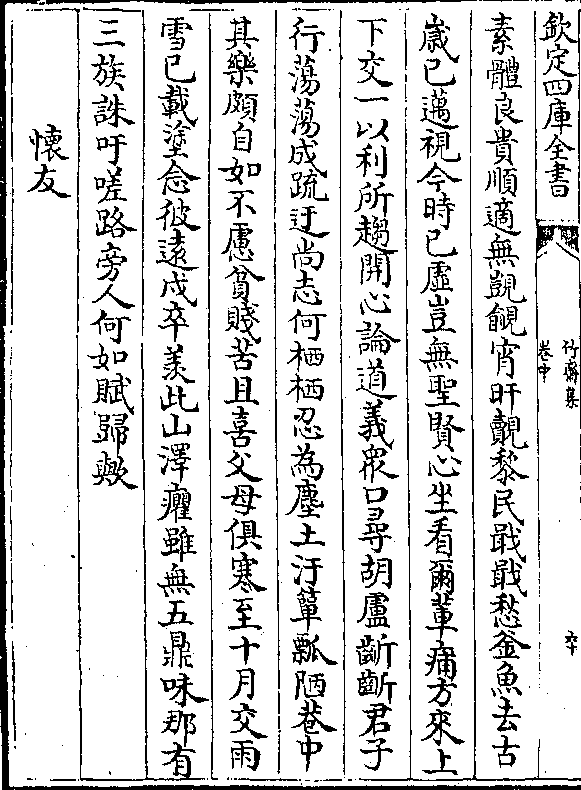 欽定四庫全書
竹齋集
卷中
六十
素體良貴順適無覬覦宵旰覿黎民戢戢愁釜魚去古
歲已邁視今時已虛豈無聖賢心坐看爾輩痡方來上
下交一以利所趨開心論道義衆口尋胡盧齗齗君子
行蕩蕩成疏迂尚志何栖栖忍為塵土汙簞瓢陋巷中
其樂頗自如不慮貧賤苦且喜父母俱寒至十月交雨
雪已載塗念彼遠戍卒羨此山澤癯雖無五鼎味那有
三族誅吁嗟路旁人何如賦歸歟
懷友